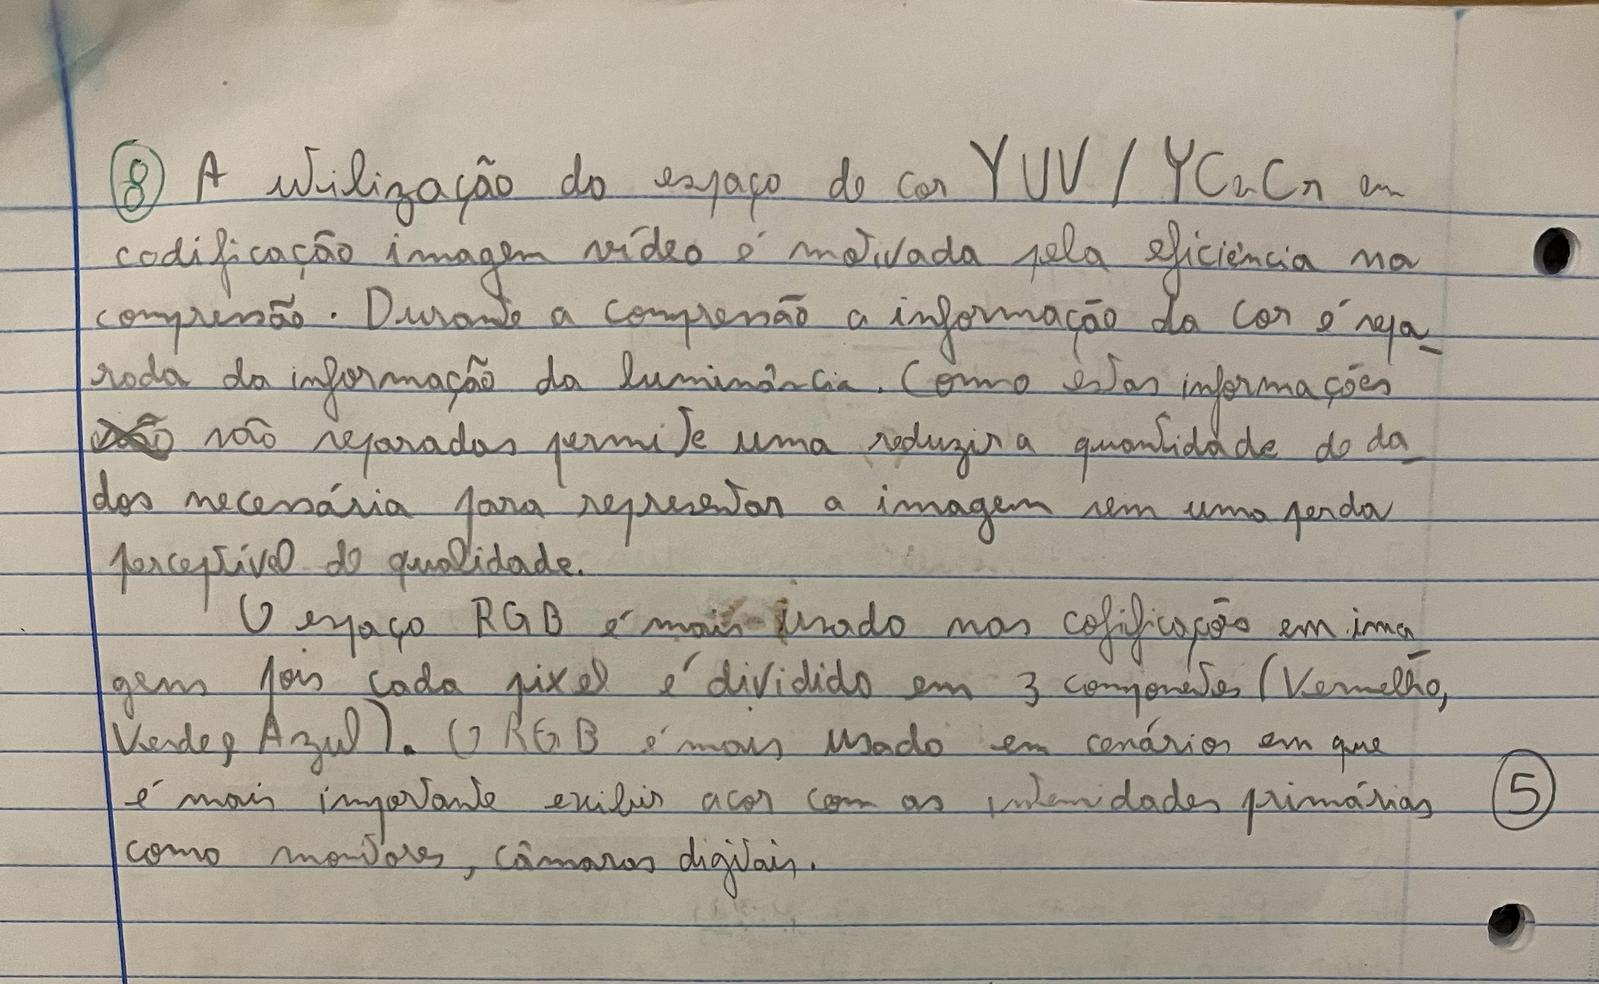 8 A utilização do espaço de cor YUV / YCbCr em
codificação imagem vídeo é motivada pela eficiência na
compresão. Durante a compresão a informação da cor é sepa_
rada da informação da luminância. Como estas informações
são separadas permite uma reduzir a quantidade de da_
dos necessária para representar a imagem sem uma perda
perceptível de qualidade.
O espaço RGB é mais usado nas cofificação em ima_
gem pois cada pixel é dividido em 3 componentes (Vermelho,
Verde, Azul). O RGB é mais usado em cenários em que
é mais importante exibir a cor com as intensidades primárias
como monitores, câmaras digitais.
5